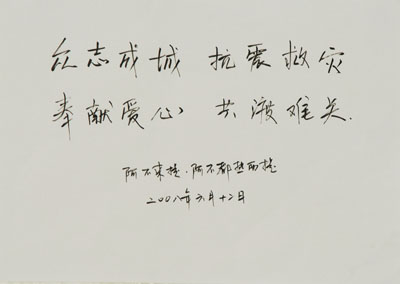 众志成城 抗震救灾
奉献爱心 共渡难关.
阿不来提·阿不都热西提
二〇〇八年六月十二日